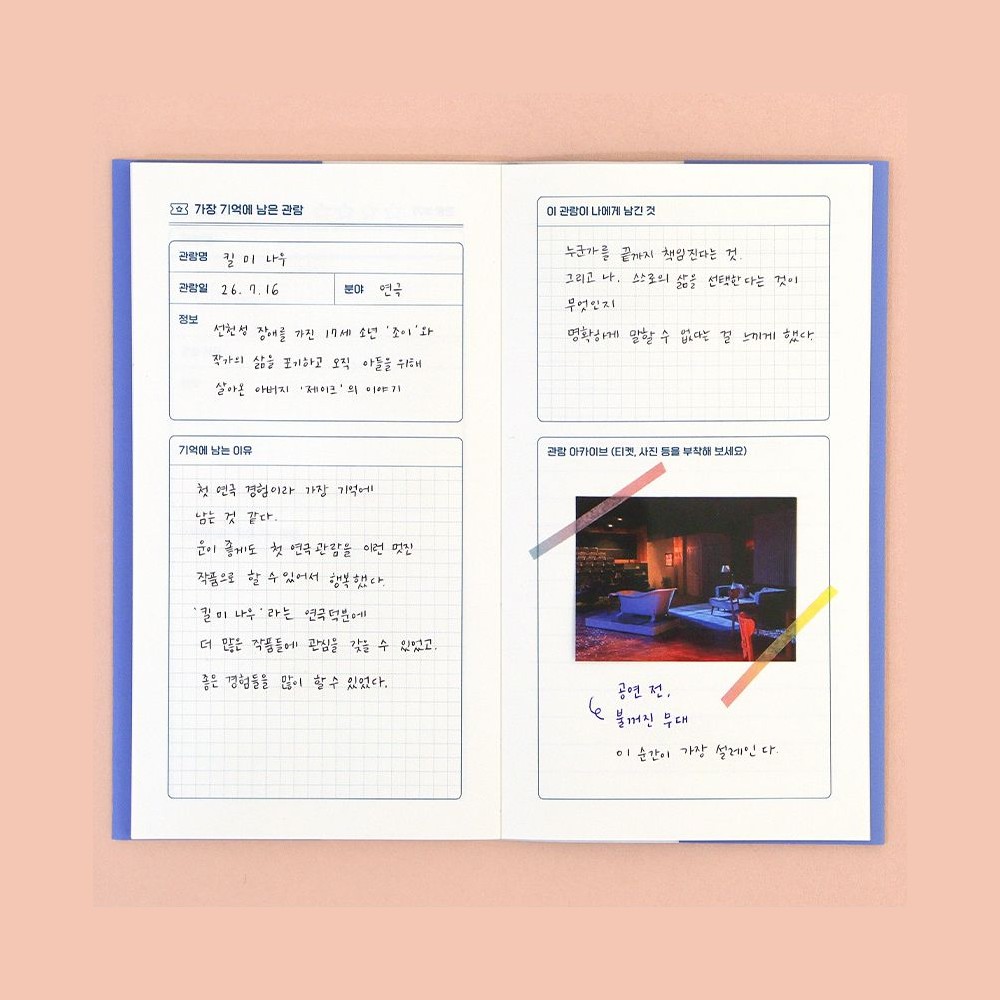 가장 기억에 남은 관람
관람명 킬 미 나우
관람일 26. 7. 16 분야 연극
정보 선천성 장애를 가진 17세 소년 '조이'와
작가의 삶을 포기하고 오직 아들을 위해
살아온 아버지 '제이크'의 이야기
기억에 남는 이유
첫 연극 경험이라 가장 기억에
남는 것 같다.
운이 좋게도 첫 연극관람을 이런 멋진
작품으로 할 수 있어서 행복했다.
'킬 미 나우'라는 연극덕분에
더 많은 작품들에 관심을 갖을 수 있었고.
좋은 경험들을 많이 할 수 있었다.
이 관람이 나에게 남긴 것
누군가를 끝까지 책임진다는 것.
그리고 나. 스스로의 삶을 선택한다는 것이
무엇인지
명확하게 말할 수 없다는 걸 느끼게 했다.
관람 아카이브 (티켓, 사진 등을 부착해 보세요)
공연 전,
불꺼진 무대
이 순간이 가장 설레인다.